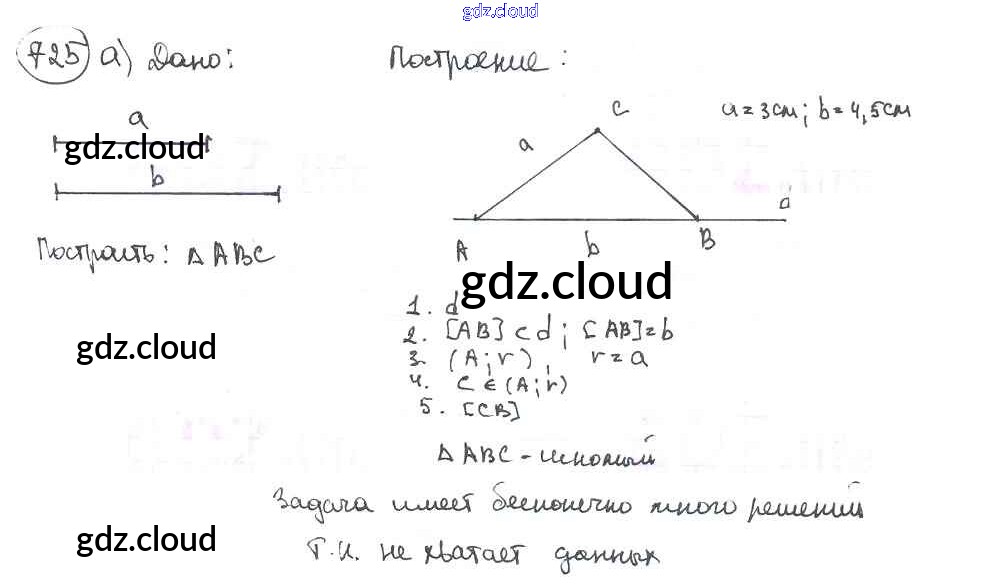 gdz.cloud
725 а) Дано:
Построение:
a
b
gdz.cloud
Построить: Δ ABC
a = 3 см; b = 4,5 см
C
a
d
A
b
B
gdz.cloud
1. d
2. [AB] ⊂ d ; [AB] = b
3. (A; r) , r = a
4. C ∈ (A; r)
5. [CB]
Δ ABC - искомый
gdz.cloud
Задача имеет бесконечно много решений
т.к. не хватает данных
gdz.cloud